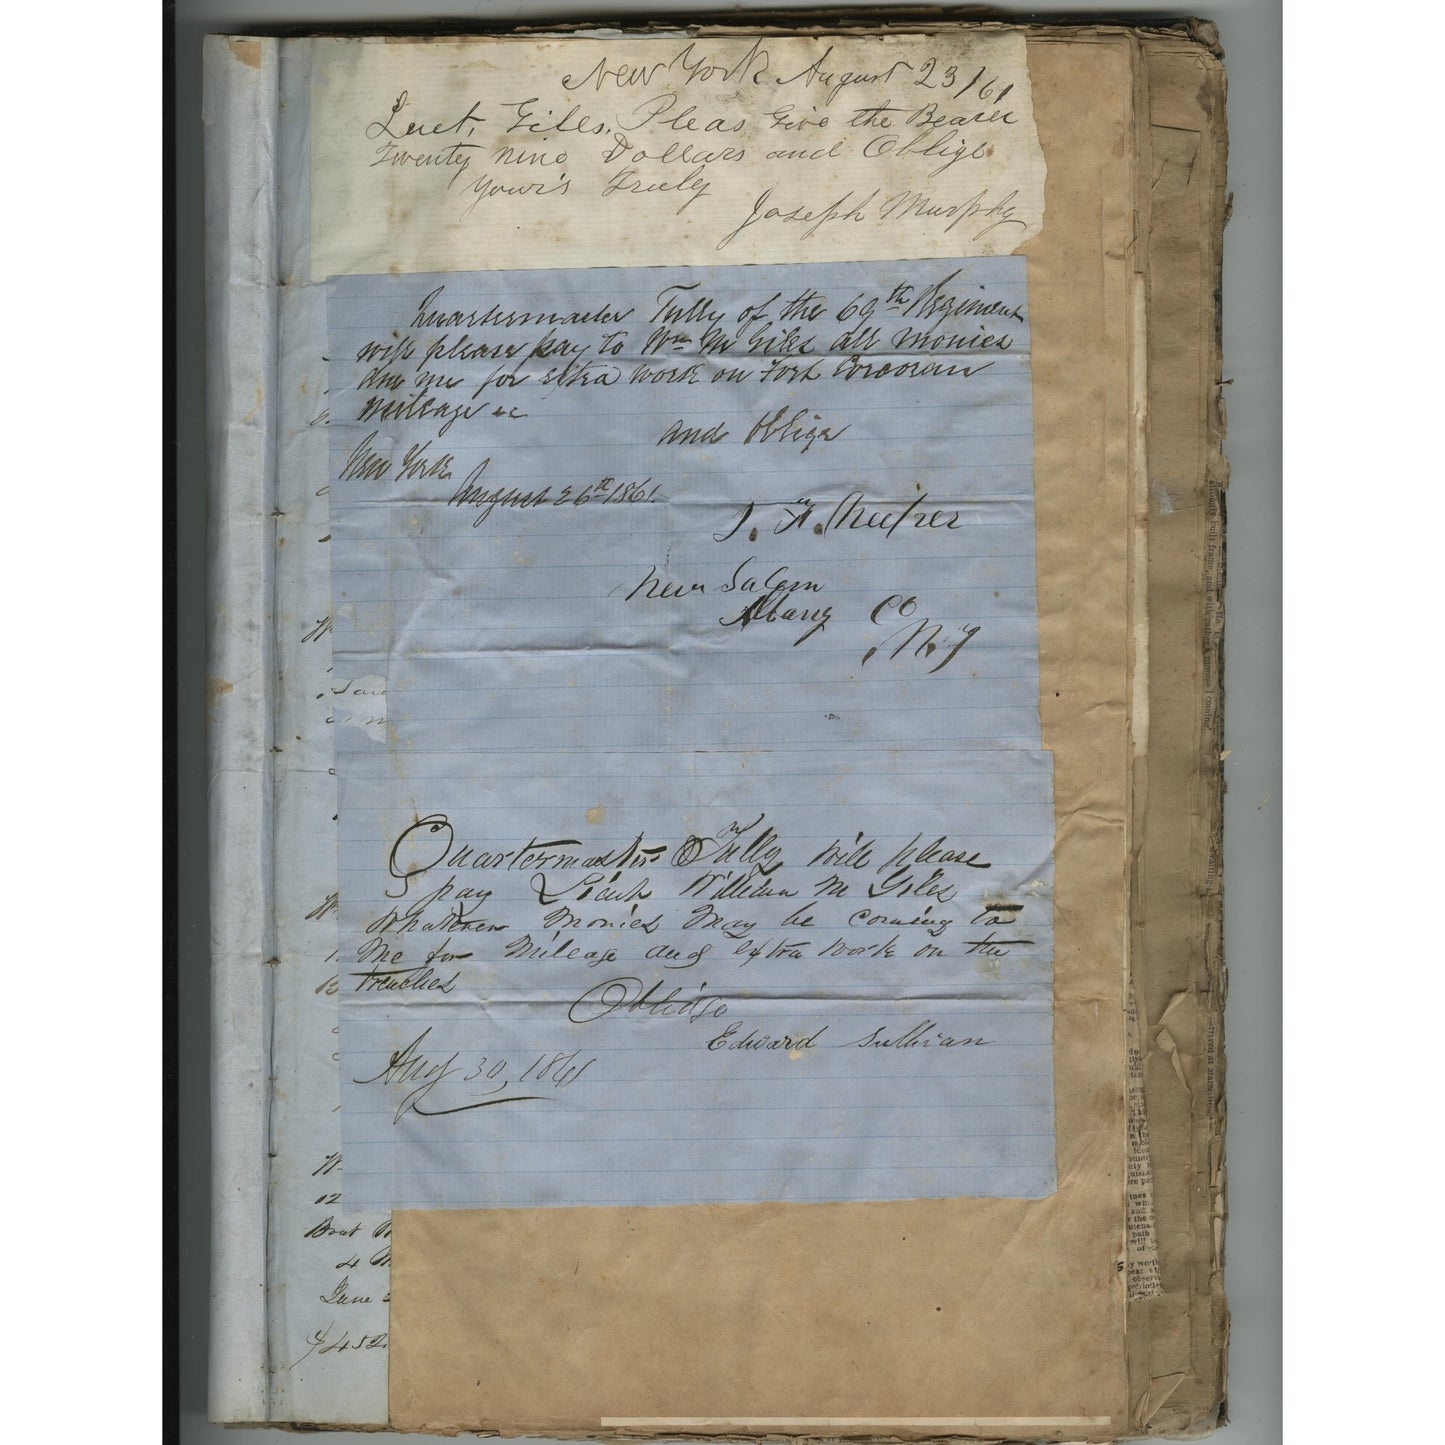 New York August 23/61
Luet. Giles. Pleas Give the Bearer
Twenty nine Dollars and Oblige
Your's Truly
Joseph Murphy
Quartermaster Tully of the 69th Regiment
will please pay to Wm M Giles all monies
due me for extra work on Fort Corcoran
mileage &c
and Oblige
New York
August 26th 1861.
New Salem
Albany Co
N. Y
Quartermaster Tully will please
pay Lieut William M Giles
Whatever Monies May be coming to
Me for Mileage and extra work on the
trenches
Oblidge
Edward Sullivan
Aug 30, 1861
12
4
June
$452.